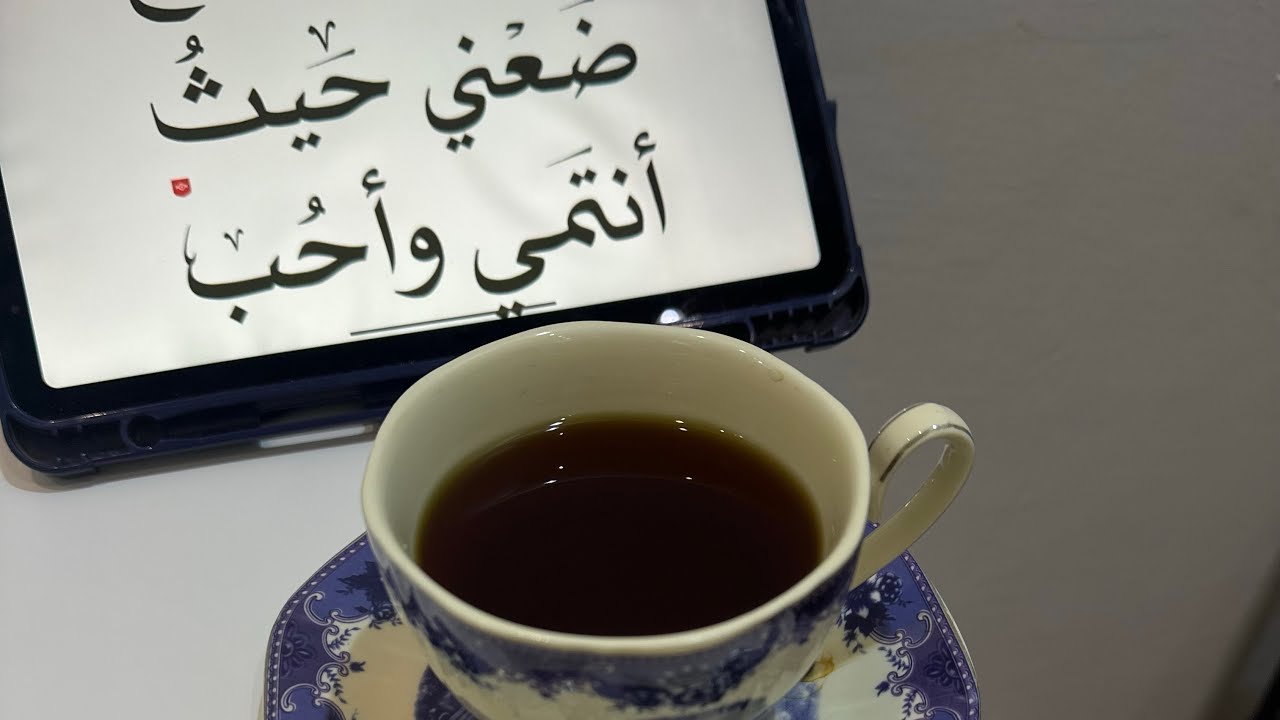 ضَعْني حَيثُ
أنتَمي وأحُب